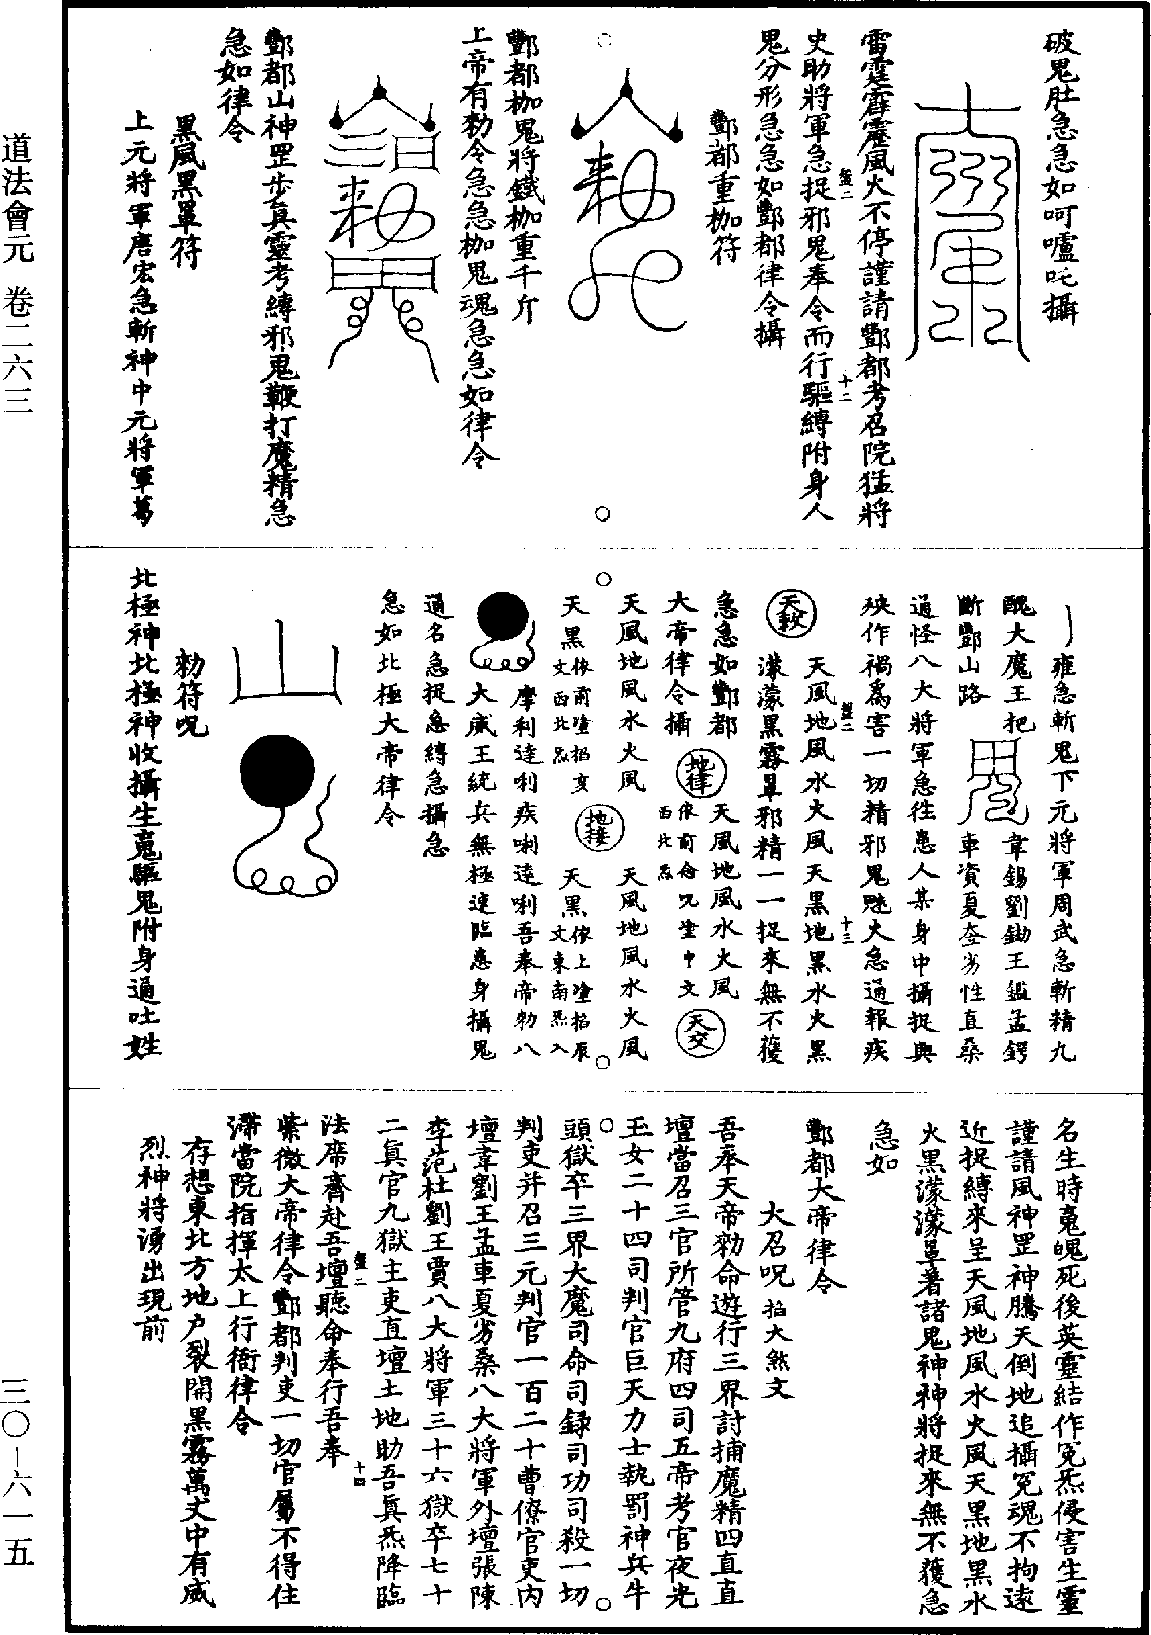 道法會元 卷二六三
三〇—六一五
破鬼肚急急如呵嚧吒攝
雷霆霹靂風火不停謹請酆都考召院猛將
史助將軍急捉邪鬼奉令而行驅縛附身人
鬼分形急急如酆都律令攝
酆都重枷符
酆都枷鬼將鐵枷重千斤
上帝有勑令急急枷鬼魂急急如律令
酆都山神罡步真靈考縛邪鬼鞭打魔精急
急如律令
黑風黑罩符
上元將軍唐宏急斬神中元將軍葛
雍急斬鬼下元將軍周武急斬精九
醜大魔王把
韋錫劉鋤王鑑孟鍔
斷酆山路
車資夏夽劣性直桑
通怪八大將軍急往患人某身中攝捉與
殃作禍為害一切精邪鬼魅火急通報疾
天敕
天風地風水火風天黑地黑水火黑
濛濛黑霧罩邪精一一捉來無不獲
急急如酆都
天風地風水火風
大帝律令攝
地律
依前念咒塗中文
西北炁
天交
天風地風水火風
天風地風水火風
天黑
依前塗掐亥
文西北炁
地接
天黑
依上塗掐辰
文東南炁入
摩利達唎疾唎達唎吾奉帝勑八
大威王統兵無極速臨患身攝鬼
通名急捉急縛急攝急
急如北極大帝律令
勑符呪
北極神北極神收攝生魂驅鬼附身通吐姓
名生時魂魄死後英靈結作冤炁侵害生靈
謹請風神罡神騰天倒地追攝冤魂不拘遠
近捉縛來呈天風地風水火風天黑地黑水
火黑濛濛罩著諸鬼神神將捉來無不獲急
急如
酆都大帝律令
大召呪 掐大煞文
吾奉天帝勑命遊行三界討捕魔精四直直
壇當召三官所管九府四司五帝考官夜光
玉女二十四司判官巨天力士執罰神兵牛
頭獄卒三界大魔司命司錄司功司殺一切
判吏并召三元判官一百二十曹僚官吏內
壇韋劉王孟車夏劣桑八大將軍外壇張陳
李范杜劉王賈八大將軍三十六獄卒七十
二真官九獄主吏直壇土地助吾真炁降臨
法席齊赴吾壇聽命奉行吾奉
紫微大帝律令酆都判吏一切官屬不得住
滯當院指揮太上行衙律令
存想東北方地戶裂開黑霧萬丈中有威
烈神將湧出現前